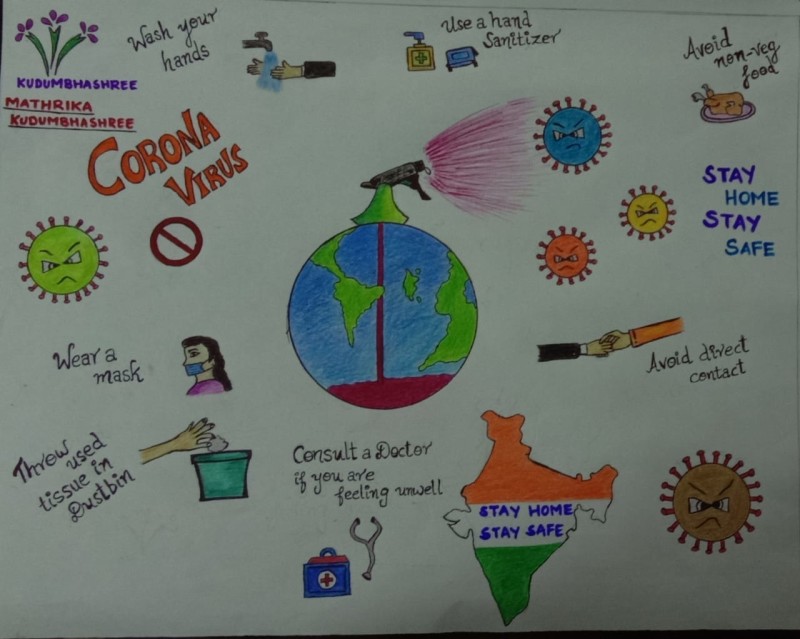 Wash your
hands
Use a hand
Sanitizer
Avoid
non-veg
food
KUDUMBHASHREE
MATHRIKA
KUDUMBHASHREE
CORONA
VIRUS
STAY
HOME
STAY
SAFE
Wear a
mask
Avoid direct
contact
Throw used
tissue in
Dustbin
Consult a Doctor
if you are
feeling unwell
STAY HOME
STAY SAFE